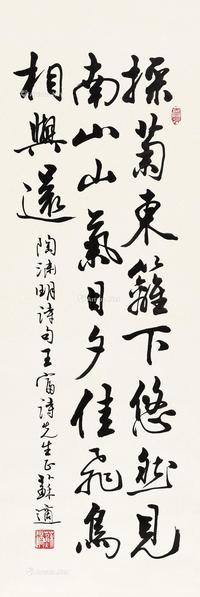 採菊東籬下悠然見
南山山氣日夕佳飛鳥
相與還 陶渊明詩句王富詩先生正 蘇適